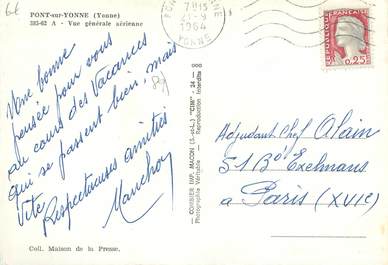 66
PONT-sur-YONNE (Yonne)
385-62 A - Vue générale aérienne
Une bonne
pensée pour vous
au cours des Vacances
qui se passent bien, mais
Vite.
Respectueuses amitiés
Coll. Maison de la Presse.
COMBIER IMP. MACON (S.-et-L.) "CIM" - 24 - 000
Photographie Véritable - Reproduction Interdite
17H15
21-9
1964
YONNE
REPUBLIQUE FRANÇAISE
0,25
Adjudant Chef Alain
51 Bd Exelmans
à Paris (XVIe)